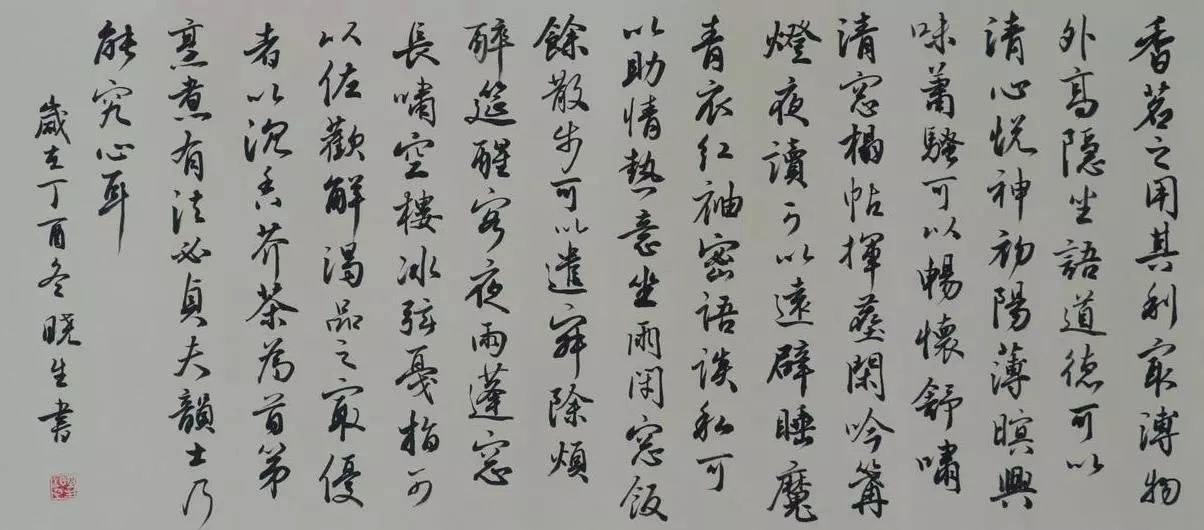 香茗之用其利最溥物
外高隐坐語道德可以
清心悦神初陽薄暝興
味蕭騷可以暢懷舒嘯
清窓榻帖揮麈閑吟篝
燈夜讀可以遠辟睡魔
青衣紅袖密語談私可
以助情熱意坐雨闲窓飯
餘散步可以遣寂除煩
醉筵醒客夜雨蓬窓
長嘯空樓冰弦戛指可
以佐歡解渴品之最優
者以沉香芥茶為首第
烹煮有法必貞夫韻士乃
能究心耳
歲在丁酉冬曉生書